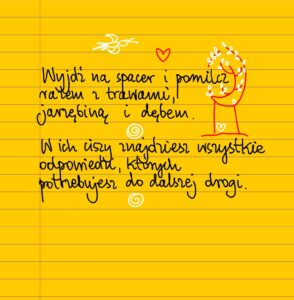 Wyjdź na spacer i pomilcz
razem z trawami,
jarzębiną i dębem.
W ich ciszy znajdziesz wszystkie
odpowiedzi, których
potrzebujesz do dalszej drogi.